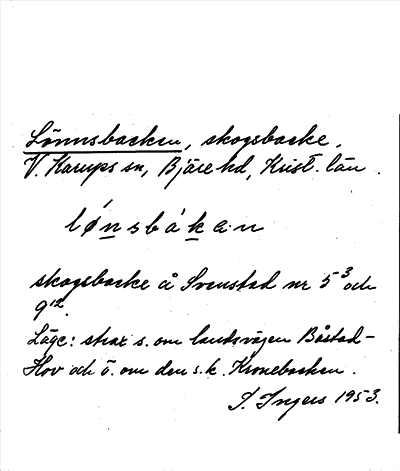 Lönnsbacken, skogsbacke,
V. Karups sn, Bjäre hd, Krist. län.
lǿnsbákan
skogsbacke å Svenstad nr 5³ och
9¹².
Läge: strax s. om landsvägen Båstad-
Hov och ö. om den s.k. Kronebacken.
I. Ingers 1953.